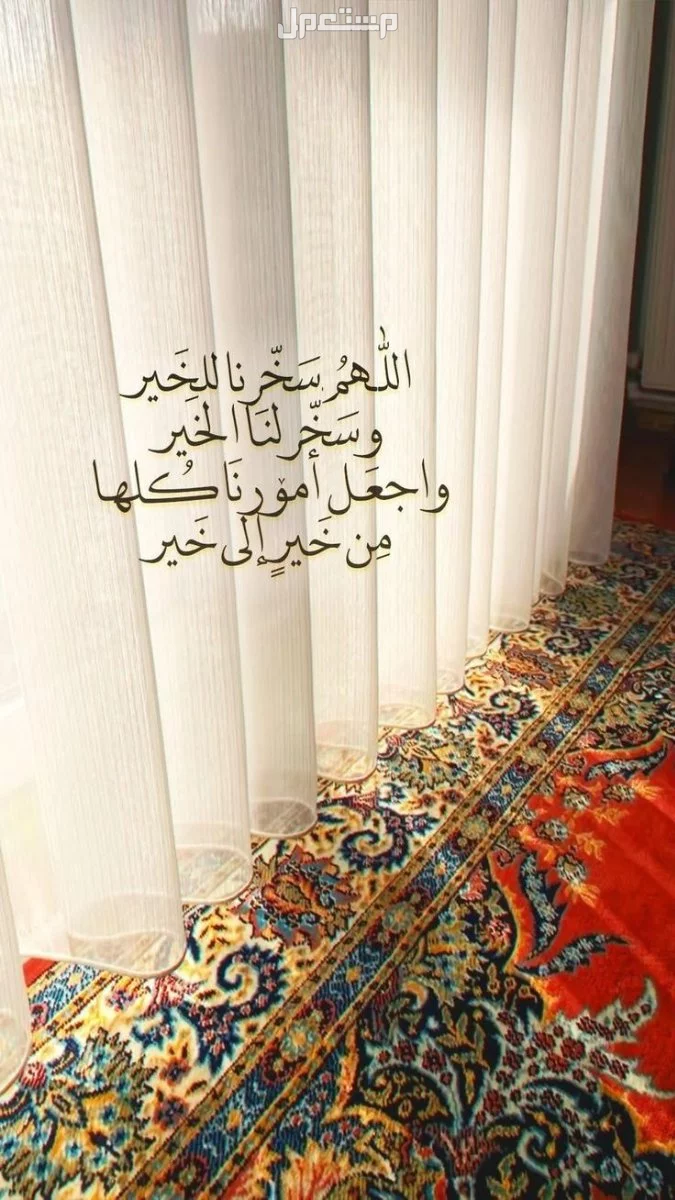 مستعمل
اللهمُ سَخّرنا للخَير
وسَخّر لنَا الخير
واجعَل أمورنَا كُلها
مِن خَيرٍ إلى خَير